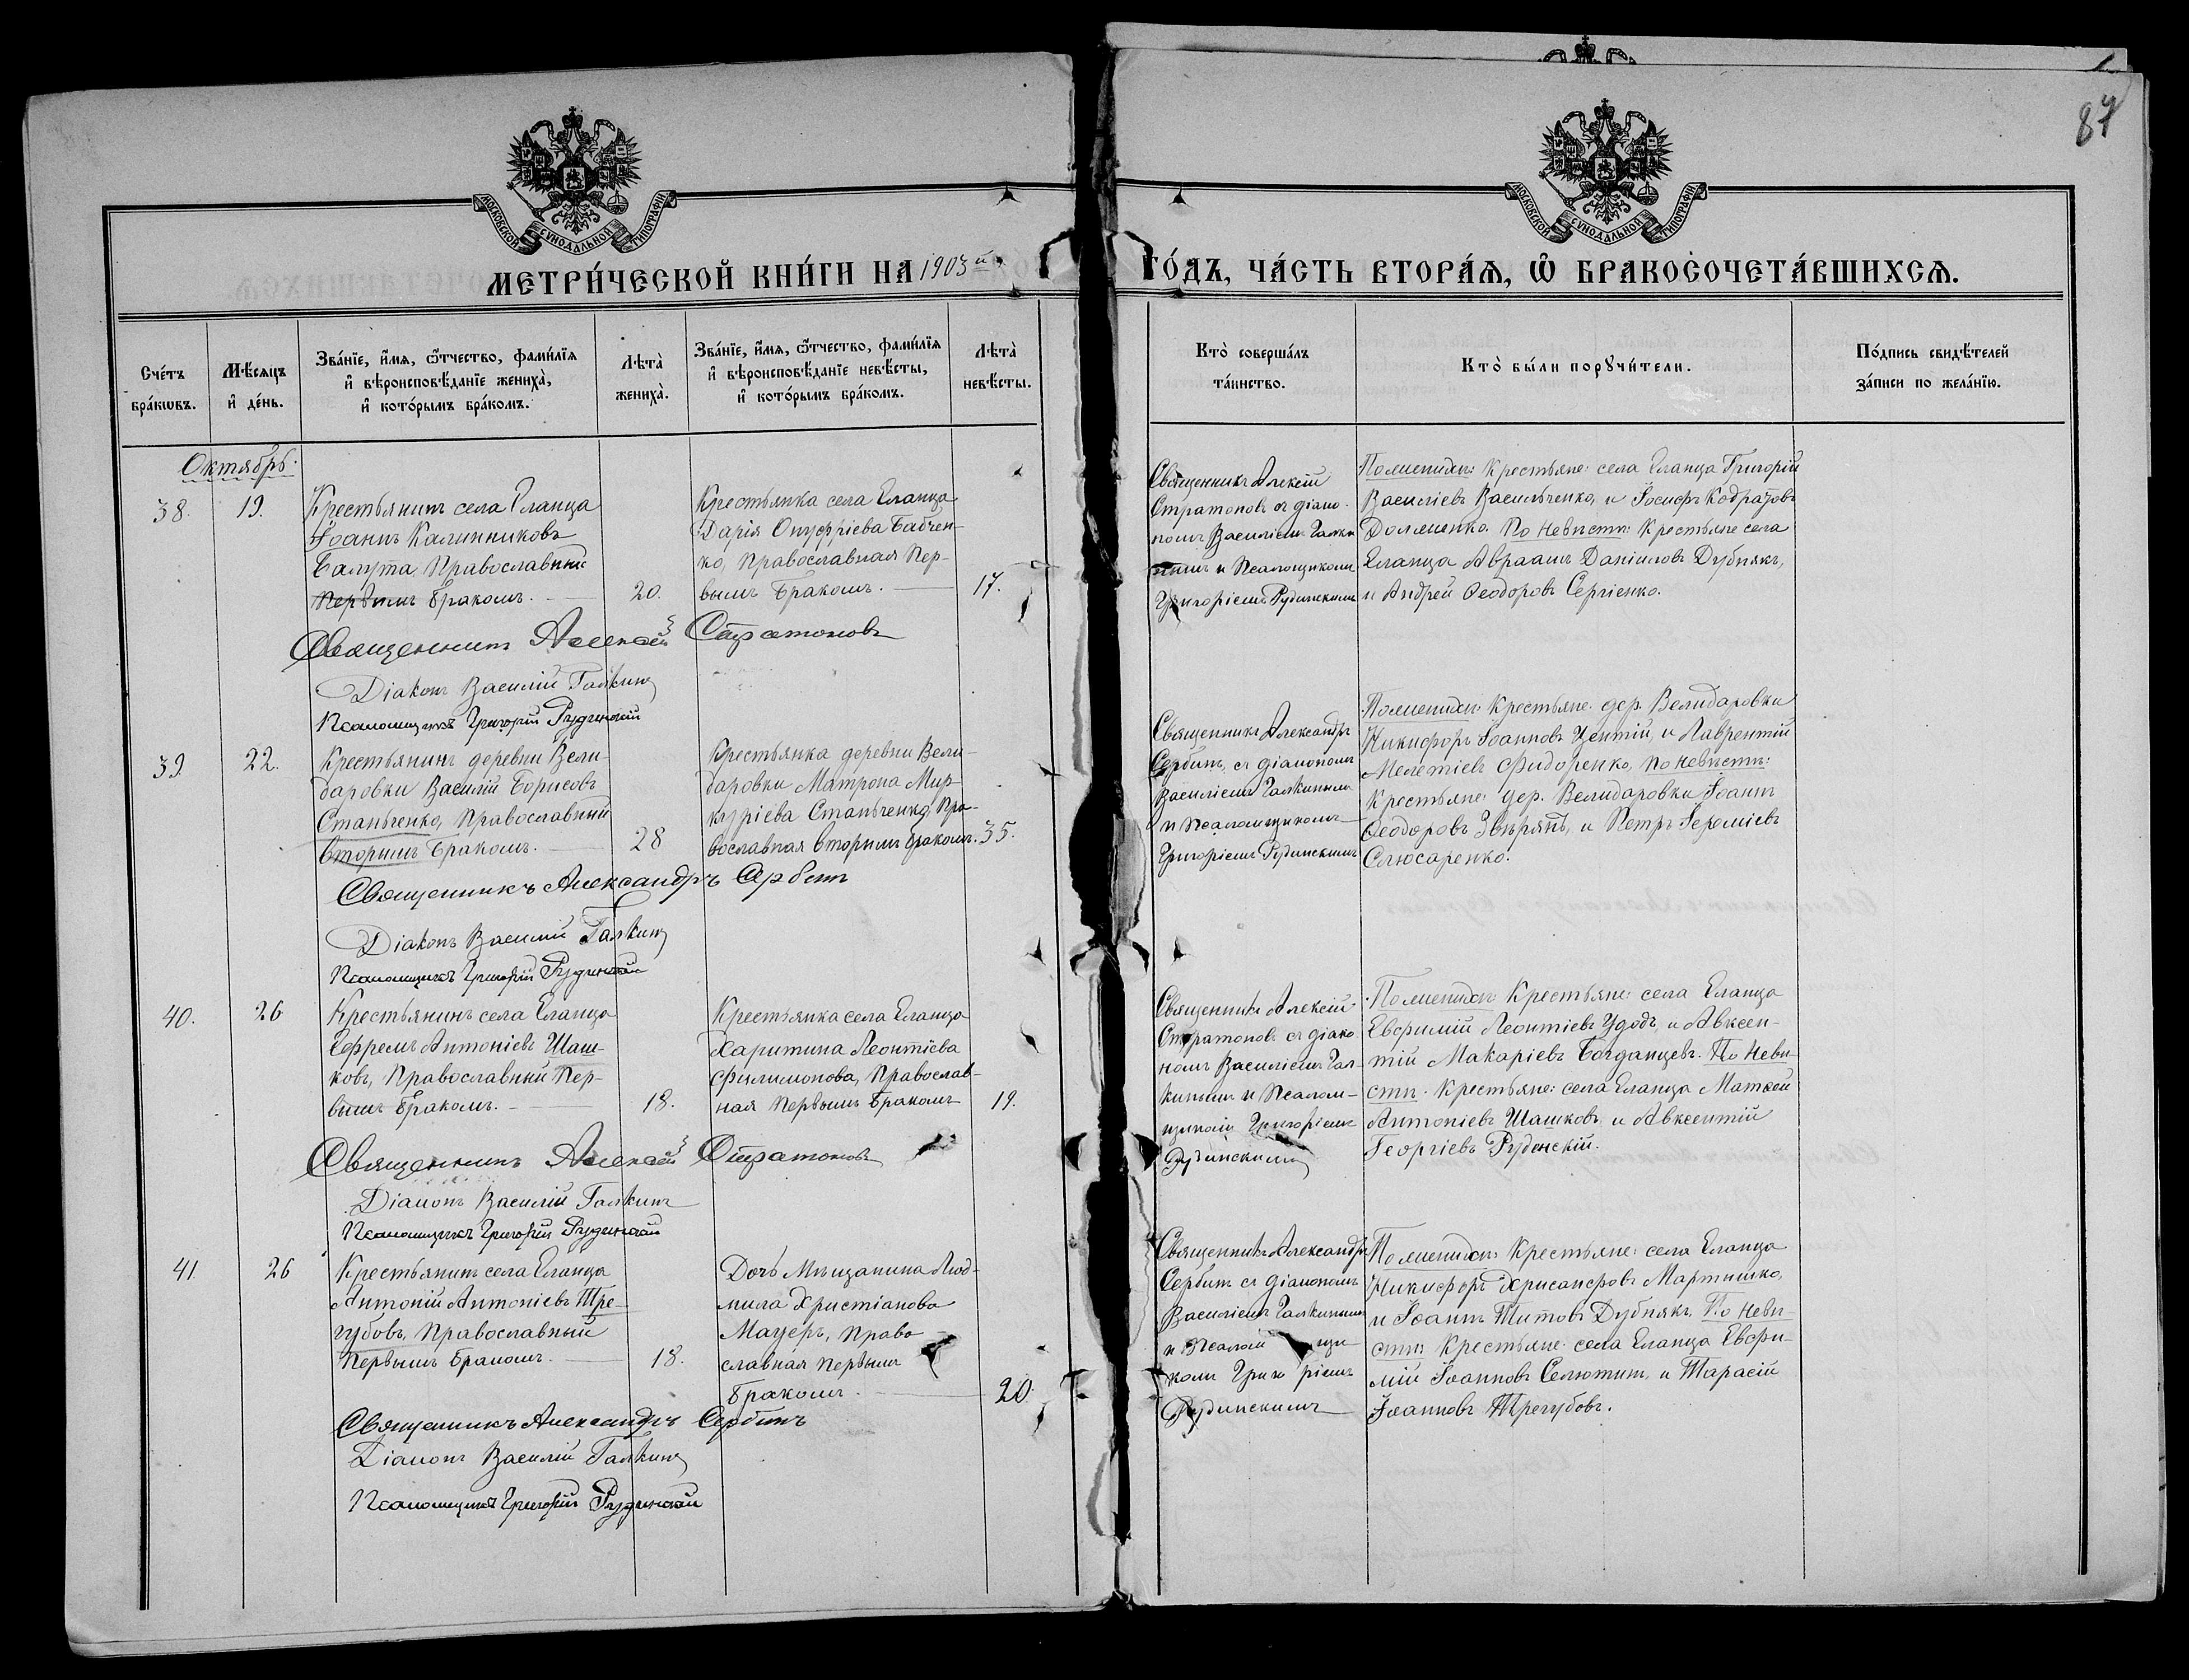 87
МОСКОВСКОЙ СѴНОДАЛЬНОЙ ТИПОГРАФІИ
МОСКОВСКОЙ СѴНОДАЛЬНОЙ ТИПОГРАФІИ
МЕТРИ́ЧЕСКОЙ КНИ́ГИ НА 1903й ГО́ДЪ, ЧА́СТЬ ВТОРА́Я, Ѽ БРАКОСОЧЕТА́ВШИХСѦ.
Сче́тъ бра́кѡвъ.
Мѣ́сяцъ и҆ де́нь.
Зва́нїе, и҆́мѧ, ѻ҆́тчество, фами́лїѧ и҆ вѣроисповѣ́данїе жениха̀, и҆ кото́рымъ бра́комъ.
Лѣта̀ жениха̀.
Зва́нїе, и҆́мѧ, ѻ҆́тчество, фами́лїѧ и҆ вѣроисповѣ́данїе невѣ́сты, и҆ кото́рымъ бра́комъ.
Лѣта̀ невѣ́сты.
Кто̀ соверша́лъ та́инство.
Кто̀ бы́ли порꙋчи́тели.
По́дпись свидѣ́телей за́писи по жела́нїю.
Октябрь.
38.
19.
Крестьянинъ села Еланца
Іоаннъ Калинниковъ
Балута, Православный
Первымъ бракомъ.
20.
Крестьянка села Еланца
Дарія Онуфріева Бабчен-
ко, Православная Пер-
вымъ бракомъ.
17.
Священникъ Алексій
Стратоновъ съ діако-
номъ Василіемъ Галки
нымъ и Псаломщикомъ
Григоріемъ Рудинскимъ
По женихѣ: Крестьяне: села Еланца Григорій
Василіевъ Васильченко, и Іосифъ Кодратовъ
По невѣстѣ: Крестьяне села
Еланца Авраамъ Даніиловъ Дубнякъ,
и Андрей Ѳеодоровъ Сергіенко.
Священникъ Алексій Стратоновъ
Діаконъ Василій Галкинъ
Псаломщикъ Григорій Рудинскій
39.
22.
Крестьянинъ деревни Вели-
даровки Василій Борисовъ
Станьченко, Православный
вторымъ бракомъ.
28
Крестьянка деревни Вели-
даровки Матрона Мир-
куріева Станьченко, Пра-
вославная вторымъ бракомъ.
35.
Священникъ Александръ
Сербинъ, съ діакономъ
Василіемъ Галкинымъ
и Псаломщикомъ
Григоріемъ Рудинскимъ
По женихѣ: Крестьяне: дер. Велидаровки
Никифоръ Іоанновъ и Лаврентій
Мелетіевъ Фидоренко, По невѣстѣ:
Крестьяне: дер. Велидаровки Іоаннъ
Ѳеодоровъ и Петръ Іереміевъ
Слюсаренко.
Священникъ Александръ Сербинъ
Діаконъ Василій Галкинъ
Псаломщикъ Григорій Рудинскій
40.
26
Крестьянинъ села Еланца
Ефремъ Антоніевъ Шаш-
ковъ, Православный Пер-
вымъ бракомъ.
18.
Крестьянка села Еланца
Харитина Леонтіева
Филимонова, Православ-
ная Первымъ бракомъ
19.
Священникъ Алексій
Стратоновъ съ діако
номъ Василіемъ Гал-
кинымъ и Псалом-
щикомъ Григоріемъ
Рудинскимъ
По женихѣ: Крестьяне: села Еланца
Евфимій Леонтіевъ Удодъ, и Авксен-
тій Макаріевъ Богданцевъ. По невѣ-
стѣ: Крестьяне: села Еланца Матѳей
Антоніевъ Шашковъ, и Авксентій
Георгіевъ Руденскій.
Священникъ Алексій Стратоновъ
Діаконъ Василій Галкинъ
Псаломщикъ Григорій Рудинскій
41.
26
Крестьянинъ села Еланца
Антоній Антоніевъ Тре-
губовъ, Православный
Первымъ бракомъ.
18.
Дочь Мѣщанина Люд-
мила Христіанова
Мауеръ, Право
славная Первымъ
бракомъ.
20.
Священникъ Александръ
Сербинъ съ діакономъ
Василіемъ Галкинымъ
и Псалом щи
комъ Григо ріемъ
Рудинскимъ
По женихѣ: Крестьяне: села Еланца
Никифоръ Хрисанфовъ Мартишко,
и Іоаннъ Титовъ Дубнякъ, По невѣ-
стѣ: Крестьяне: села Еланца Евфи-
мій Іоанновъ Селютинъ, и Тарасій
Іоанновъ Трегубовъ.
Священникъ Александръ Сербинъ
Діаконъ Василій Галкинъ
Псаломщикъ Григорій Рудинскій